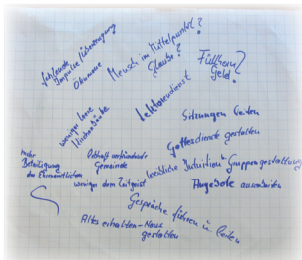 fehlende
Impulse / Überzeugung
Ökumene
Mensch im Mittelpunkt?
Glaube?
Füllhorn
Geld?
Lektorendienst
weniger leere
Kirchenbänke
Sitzungen leiten
Gottesdienste gestalten
mehr
Beteiligung
der Ehrenamtlichen
Botschaft verkündende
Gemeinde
weniger dem Zeitgeist
kirchliche Institution
Gruppengestaltung
Angebote ausarbeiten
Gespräche führen u. leiten
Altes erhalten - Neues
gestalten